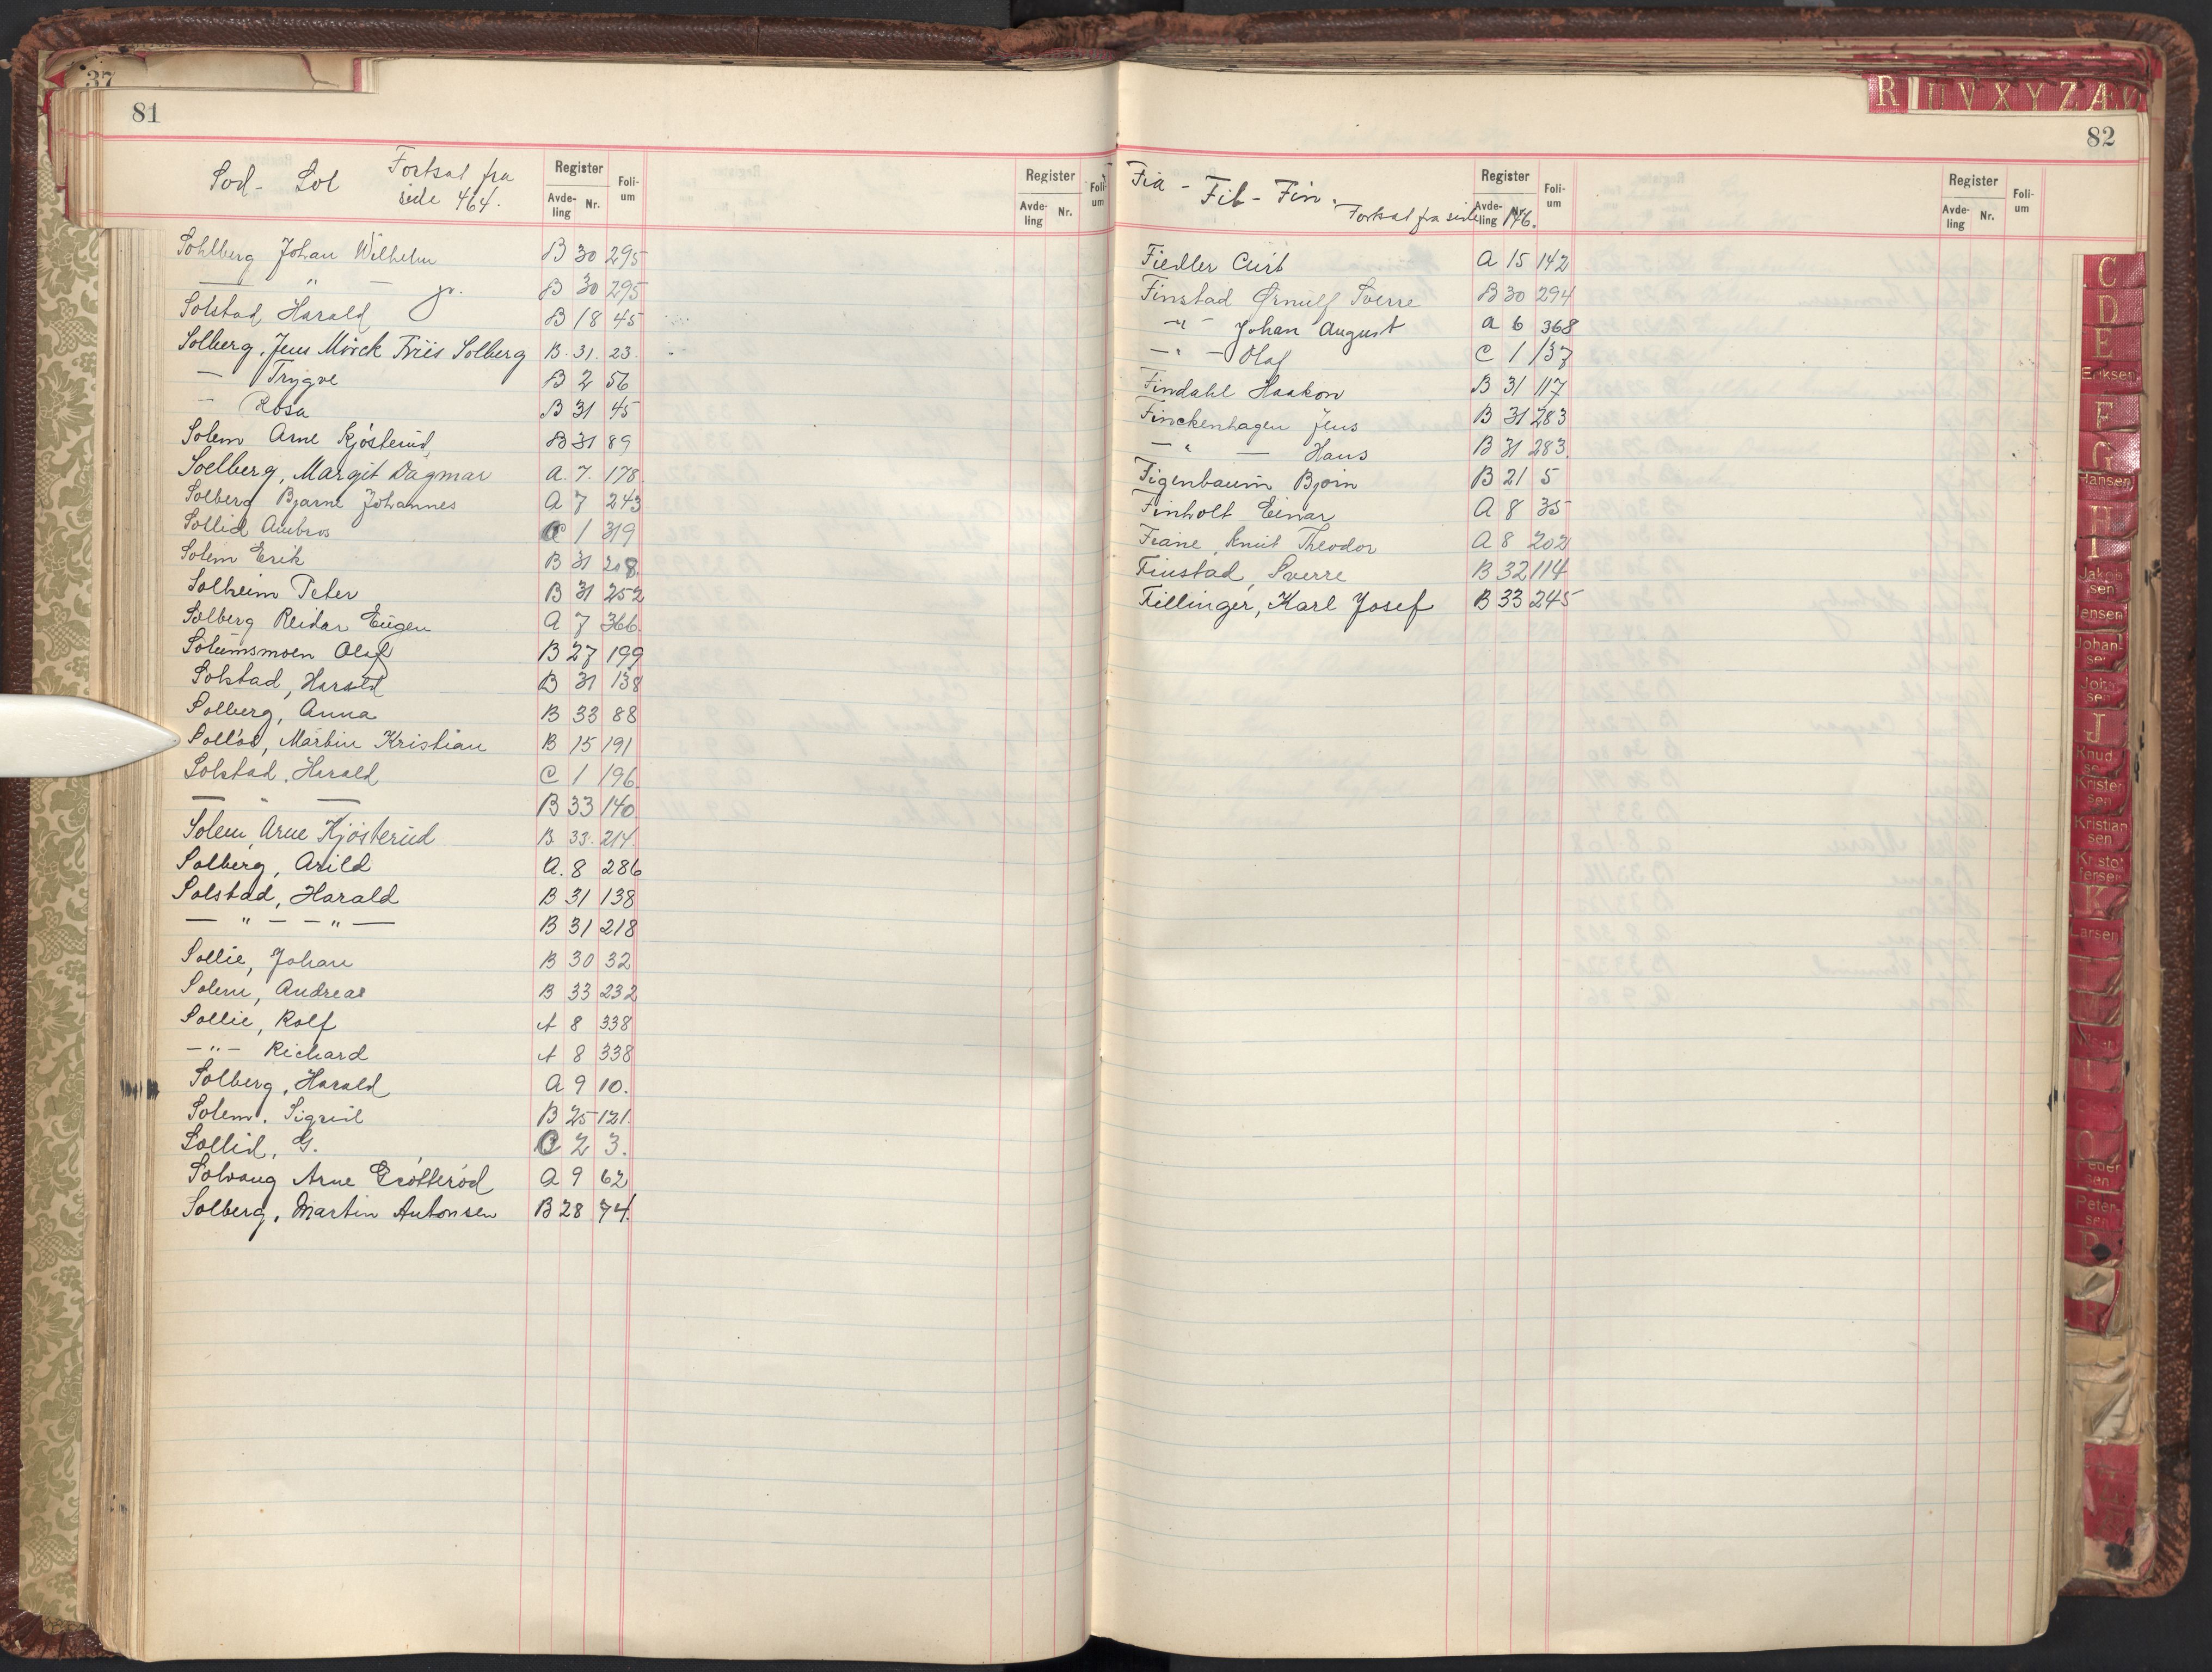 37
81
Sod - Sol Fortsat fra side 464.
Register Foli-um
Avde-ling Nr.
Register Foli-um
Avde-ling Nr.
Sohlberg Johan Wilhelm B 30 295
— " — jr. B 30 295
Solstad Harald B 18 45
Solberg, Jens Mörck Friis Solberg B. 31. 23.
— Trygve B 2 56
— Rosa B 31 45
Solem Arne Kjösterud, B 31 89
Soelberg, Margit Dagmar A. 7. 178
Solberg Bjarne Johannes A 7 243
Sollid Ambros C 1 319
Solem Erik B 31 208
Solheim Peter B 31 252
Solberg Reidar Eugen A 7 366.
Solumsmoen Olaf B 27 199
Solstad, Harald B 31 138
Solberg, Anna B 33 88
Martin Kristian B 15 191
Solstad, Harald C 1 196
— " — B 33 140
Solem, Arne Kjösterud B 33. 214.
Solberg, Arild A. 8 286
Solstad, Harald B 31 138
— " — — " — B 31 218
Sollie, Johan B 30 32
Solem, Andreas B 33 232
Sollie, Rolf A 8 338
— " — Richard A 8 338
Solberg, Harald A 9 10.
Solem. Sigrid B 25 121.
Sollid, G. C 2 3.
Solvang Arne Grötteröd A 9 62
Solberg, Martin Antonsen B 28 74.
R U V X Y Z Æ Ø
82
Fia - Fib - Fin. Fortsat fra side 146.
Register Foli-um
Avde-ling Nr.
Register Foli-um
Avde-ling Nr.
Fiedler Curt A 15 142
Finstad Ørnulf Sverre B 30 294
— " — Johan August A 6 368
— " — Olaf C 1 137
Findahl Haakon B 31 117
Finckenhagen Jens B 31 283
— " — Hans B 31 283.
Figenbaum Bjørn B 21 5
Finholt Einar A 8 35
Fiane, Knut Theodor A 8 202
Finstad, Sverre B 32 114
Fillinger, Karl Josef B 33 245
C
D
E
Eriksen
F
G
Hansen
H
I
Jakobsen
Jensen
Johansen
J
Knudsen
Kristensen
Kristiansen
Kristoffersen
K
Larsen
O
Pedersen
Petersen
P